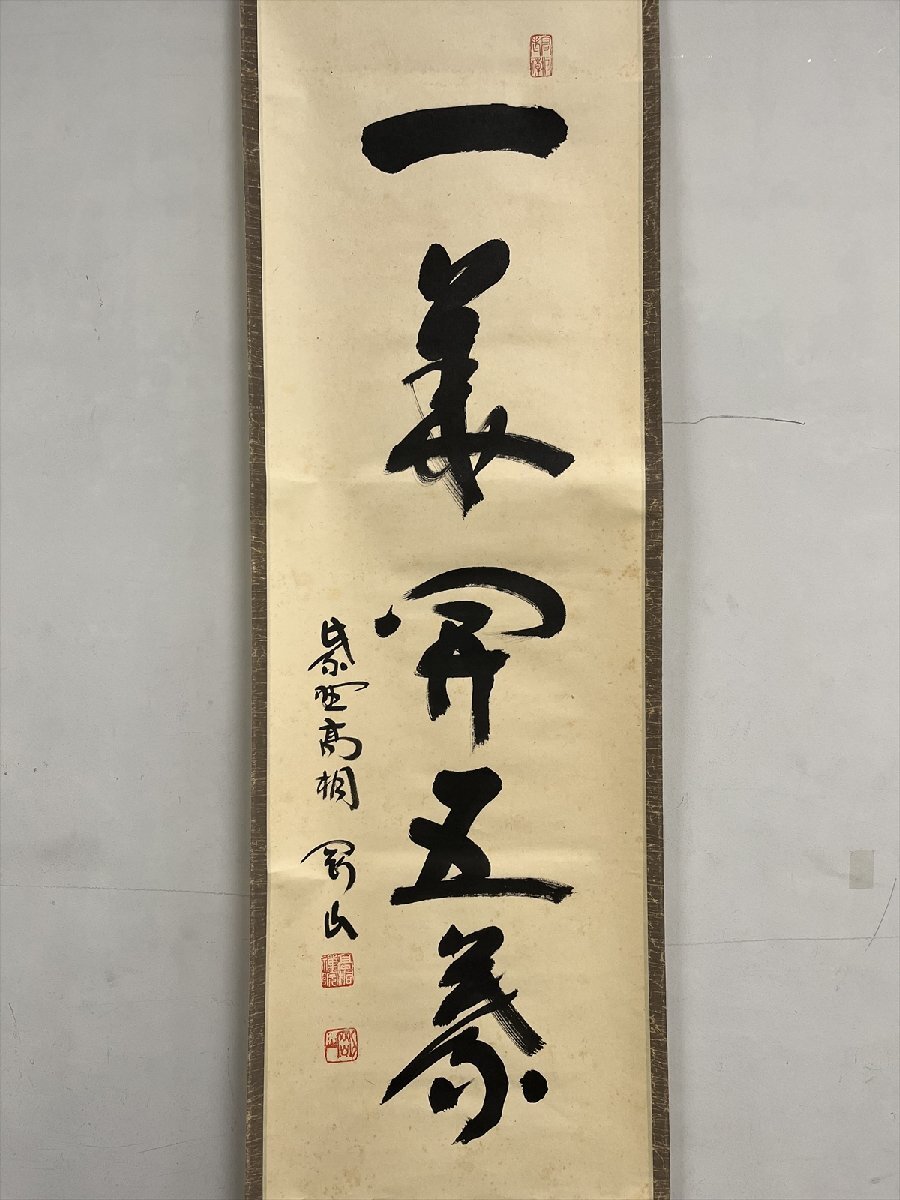 一華開五葉
紫野高桐 剛山